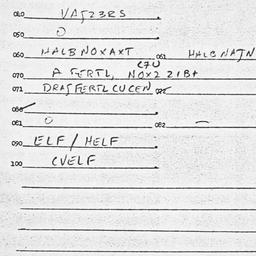 010 VAJ23RS
050 O
060 HALBNOXAXT 061 HALBNAJN
C7U
070 A FERTL, NOX2 2IB+
071 DRAJFERTLCUCEN 072
080
081 O 082 —
090 ELF / HELF
100 CVELF